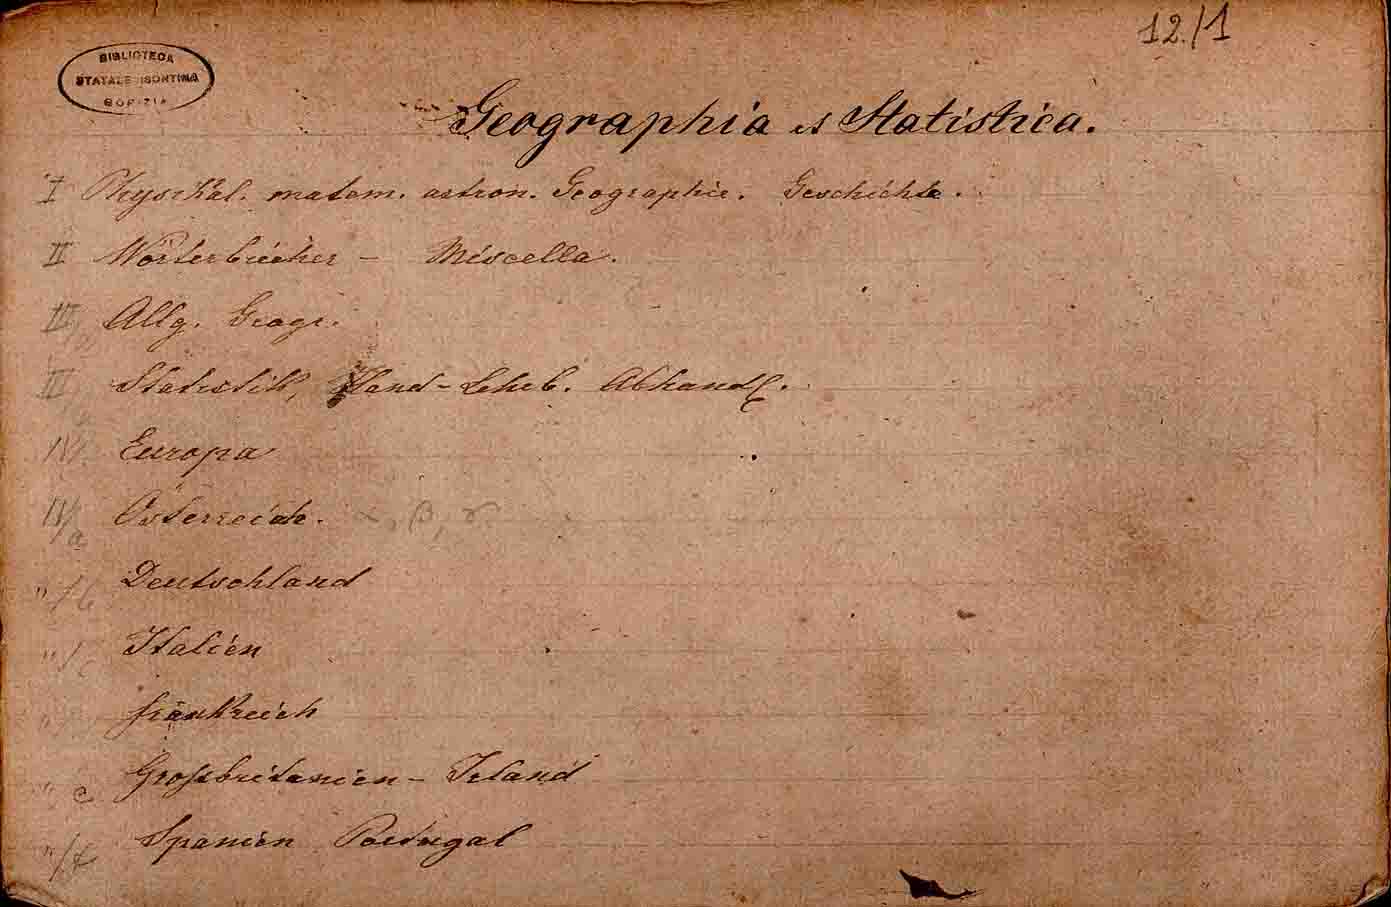 12./1
BIBLIOTECA
STATALE ISONTINA
GORIZIA
Geographia et Statistica.
I Physikal. matem. astron. Geographie. Geschichte.
II Wörterbücher - Miscella.
III Allg. Geogr.
III Statistik, Hand-Lehrb. Abhandl.
IV. Europa
IV/a Österreich. α, β, γ
" /b Deutschland
" /c Italien
" Frankreich
" e Großbritanien - Irland
" /f Spanien Portugal